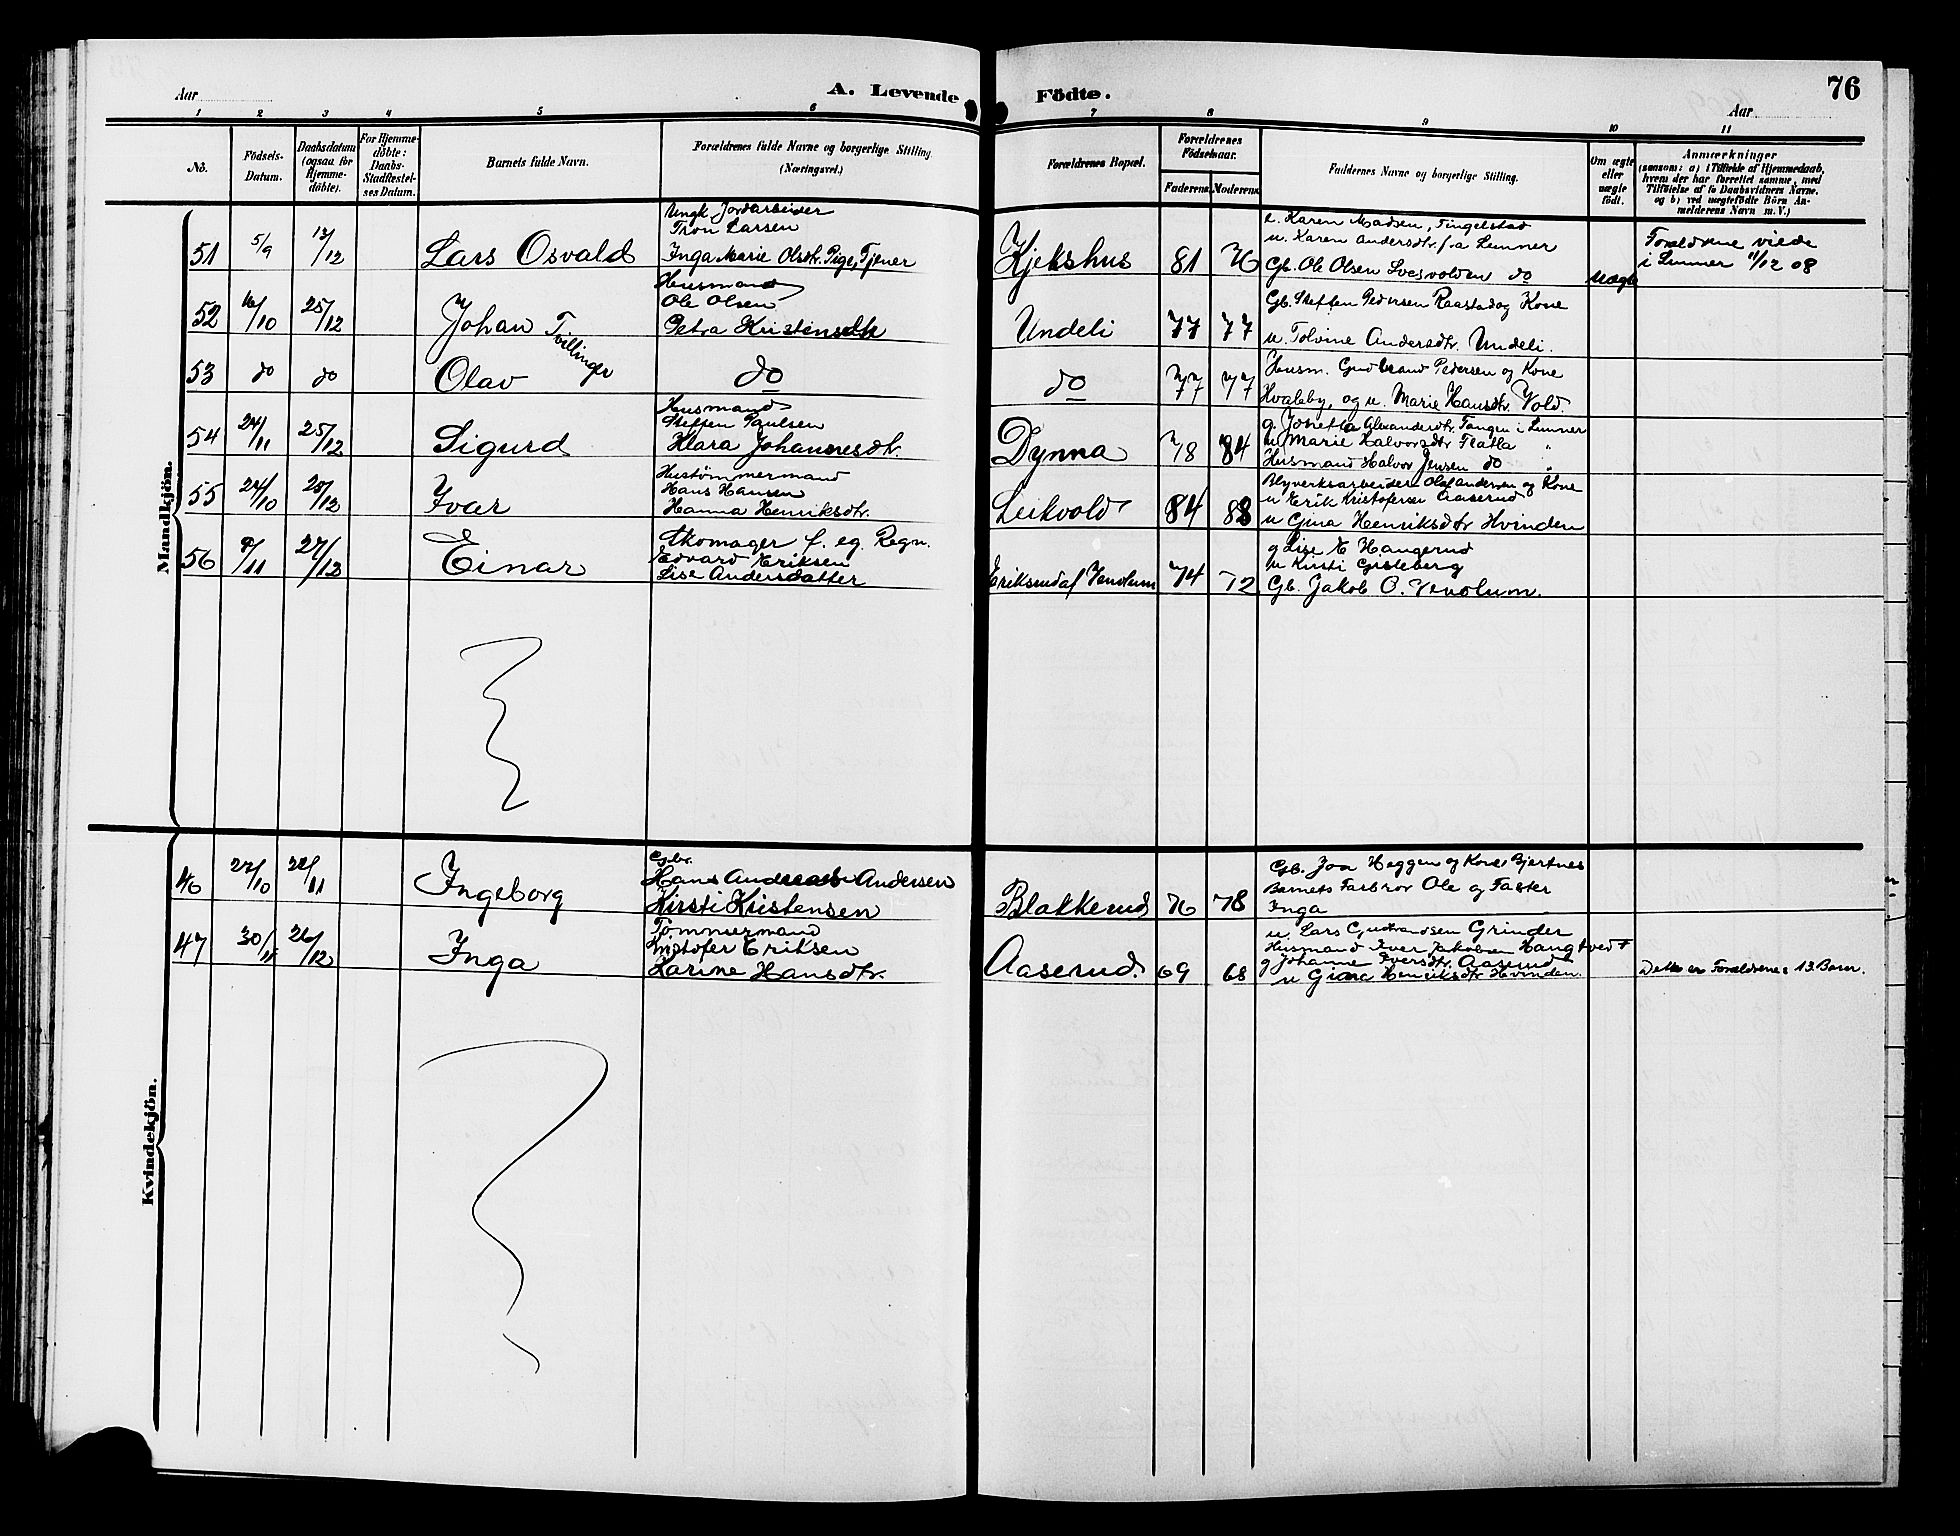 Aar
A. Levende
Födte.
76
Aar
1 2 3 4 5 6 7 8 9 10 11
No.
Födsels-
Datum.
Daabsdatum
(ogsaa for
Hjemme-
döbte).
For Hjemme-
döbte:
Daabs-
Stadfæstel-
ses Datum.
Barnets fulde Navn.
Forældrenes fulde Navne og borgerlige Stilling
(Næringsvei.)
Forældrenes Bopæl.
Forældrenes
Födselsaar.
Faderens. Moderens.
Faddernes Navne og borgerlige Stilling.
Om ægte
eller
uægte
födt.
Anmærkninger
(saasom: a) i Tilfælde af Hjemmedaab,
hvem der har forrettet samme, med
Tilföielse af to Daabsvidners Navne,
og b) ved uægtefödte Börn An-
melderens Navn m. V.)
Mandkjön.
51 5/9 13/12 Lars Osvald
Ungk. Jordarbeider
Tron Larsen
Inga Marie Olsdtr. Pige, Tjener
Kjekshus 81 76
u. Karen Madsen, Tingelstad
u. Karen Andersdtr. fra Lunner
Gb. Ole Olsen do
uægte
Forældrene viede
i Lunner 11/12 08
52 16/10 25/12 Johan Tvillinger
Husmand
Ole Olsen
Petra Kristensdtr
Undeli 77 77
Gb. Steffen Pedersen Raastad og Kone
u. Tolvine Andersdtr. Undeli.
53 do do Olav
do
do 77 77
Husm. Gudbrand Pedersen og Kone
Hvaleby, og u. Marie Hansdtr. Vold.
54 24/11 25/12 Sigurd
Husmand
Steffen Paulsen
Klara Johannesdtr.
Dynna 78 84
g. Josetta Alexandersdtr. Tangen i Lunner
u. Marie Halvorsdtr Flatla "
Husmand Halvor Jensen do "
55 24/10 25/12 Ivar
Hustømmermand
Hans Hansen
Hanna Henriksdtr.
Leikvold 84 88
Blyverksarbeider Olaf Andersen og Kone
u Erik Kristofersen Aaserud
u Gina Henriksdtr Hvinden
56 9/11 27/12 Einar
Skomager f. eg. Regn.
Edvard Eriksen
Lise Andersdatter
Eriksrud af Jenolum 74 72
g Lise E Haugerud
u Kirsti Gisleberg
Gb. Jakob O. Jenolum.
Kvindekjön.
46 27/10 22/11 Ingeborg
Gbr.
Hans Andreas Andersen
Kirsti Kristensen
Blakkerud 76 78
Gb. Jon Heggen og Kone Bjertnes
Barnets Farbror Ole og Faster
Inga
47 30/11 26/12 Inga
Tømmermand
Kristofer Eriksen
Karine Hansdtr.
Aaserud. 69 68
u. Lars Gudbrandsen Grinder
Husmand Iver Jakobsen Haugtvedt
g Johanne Iversdtr. Aaserud
u Gina Henriksdtr Hvinden.
Dette er Forældrenes 13. Barn.